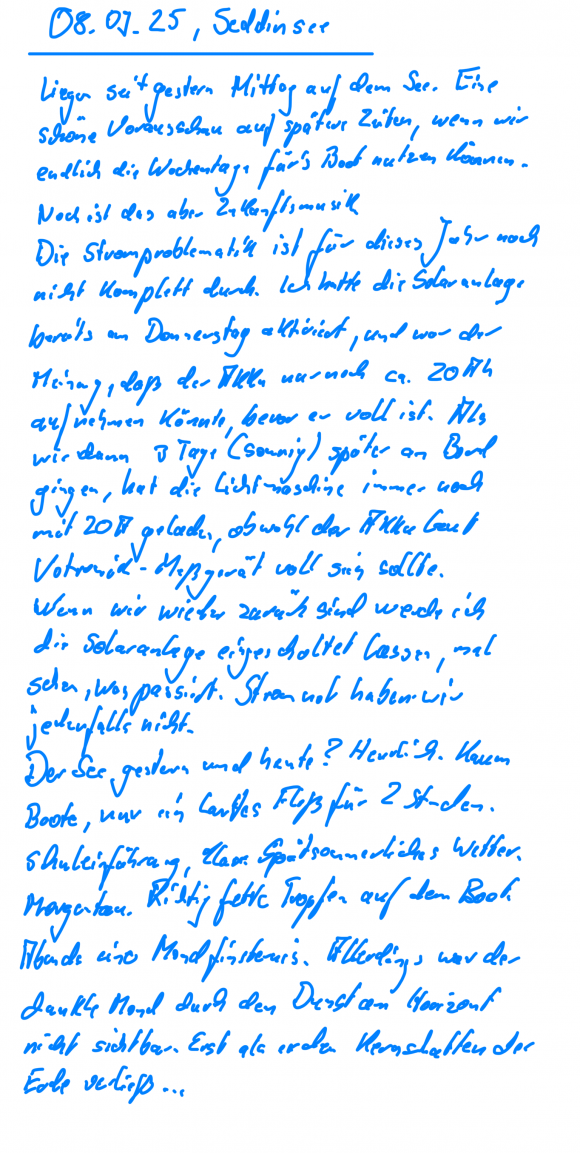 08.09.25, Seddinsee
Liegen seit gestern Mittag auf dem See. Eine
schöne Vorausschau auf spätere Zeiten, wenn wir
endlich die Wochentage für's Boot nutzen können.
Noch ist das aber Zukunftsmusik
Die Stromproblematik ist für dieses Jahr noch
nicht komplett durch. Ich hatte die Solaranlage
bereits am Donnerstag aktiviert, und war der
Meinung, daß der Akku nur noch ca. 20 Ah
aufnehmen könnte, bevor er voll ist. Als
wir dann 3 Tage (sonnig) später an Bord
gingen, hat die Lichtmaschine immer noch
mit 20A geladen, obwohl der Akku laut
Votronik-Meßgerät voll sein sollte.
Wenn wir wieder zurück sind werde ich
die Solaranlage eingeschaltet lassen, mal
sehen, was passiert. Stromnot haben wir
jedenfalls nicht.
Der See, gestern und heute? Herrlich. Kaum
Boote, nur ein lautes Floß für 2 Stunden.
Schuleinführung, klar. Spätsommerliches Wetter.
Morgentau. Richtig fette Tropfen auf dem Boot.
Abends eine Mondfinsternis. Allerdings war der
dunkle Mond durch den Dunst am Horizont
nicht sichtbar. Erst als er den Kernschatten der
Erde verließ...